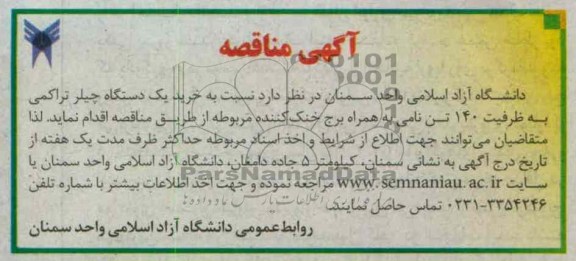 آگهی مناقصه
دانشگاه آزاد اسلامی واحد سمنان در نظر دارد نسبت به خرید یک دستگاه چیلر تراکمی
به ظرفیت ۱۴۰ تن نامی به همراه برج خنک‌کننده مربوطه از طریق مناقصه اقدام نماید. لذا
متقاضیان می‌توانند جهت اطلاع از شرایط و اخذ اسناد مربوطه حداکثر ظرف مدت یک هفته از
تاریخ درج آگهی به نشانی سمنان، کیلومتر ۵ جاده دامغان، دانشگاه آزاد اسلامی واحد سمنان یا
سایت www.semnaniau.ac.ir مراجعه نموده و جهت اخذ اطلاعات بیشتر با شماره تلفن
۰۲۳۱-۳۳۵۴۲۴۶ تماس حاصل نمایند.
روابط عمومی دانشگاه آزاد اسلامی واحد سمنان
ParsNamadData